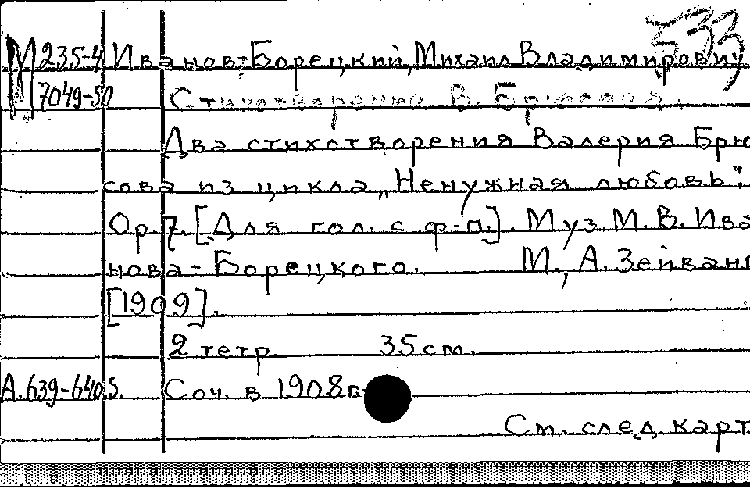 533
М 235-4 Иванов-Борецкий, Михаил Владимирович
М 7049-50 Стихотворения В. Брюсова.
Два стихотворения Валерия Брю
сова из цикла „Ненужная любовь".
Op. 7. [Для гол. с ф-п.]. Муз. М. В. Ива
нова-Борецкого. М., А. Зейванг
[1909].
2 тетр. 35 см.
А. 639-640,5. Соч. в 1908 г.
См. след. карт